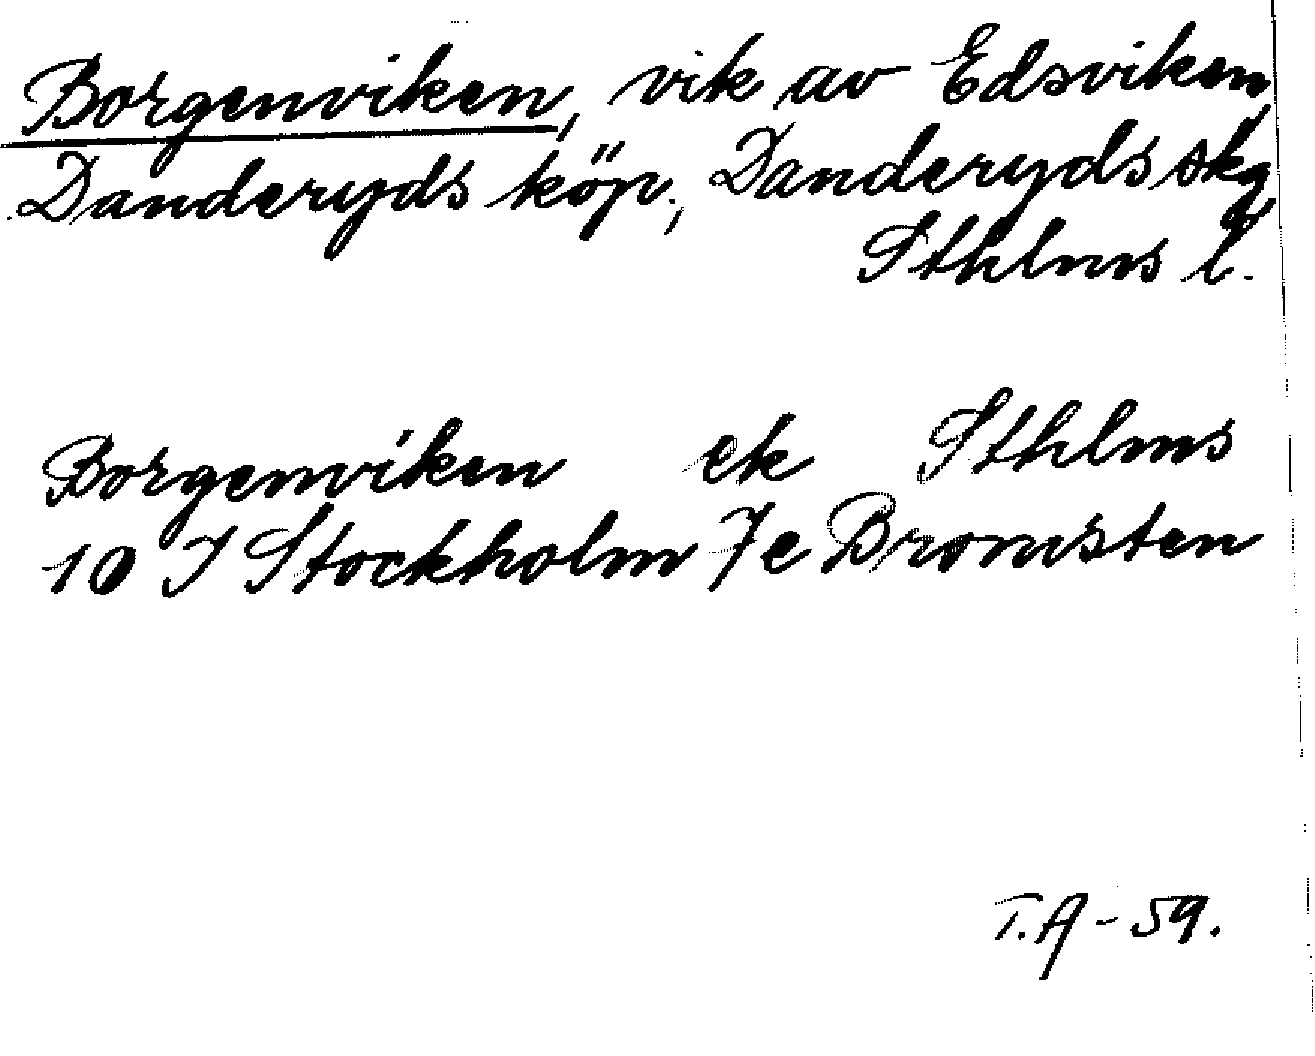 Borgenviken, vik av Edsviken,
Danderyds köp., Danderyds skg
Sthlms l.
Borgenviken ek Sthlms
10 I Stockholm 7e Bromsten
T.A-59.